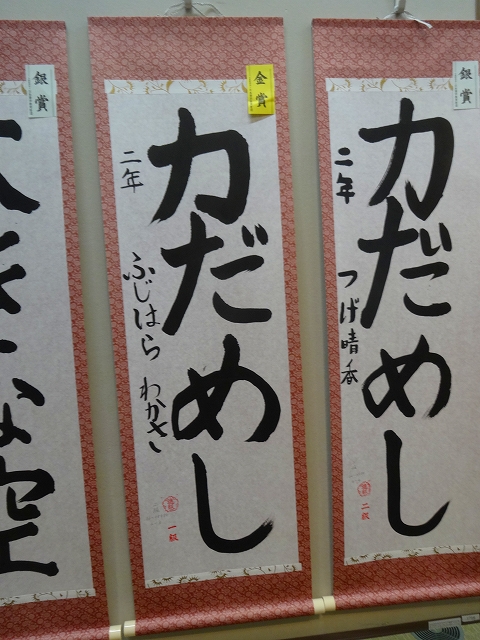 銀賞
力だめし
二年
つげ晴香
二級
金賞
力だめし
二年
ふじはら わかさ
一級
銀賞
大きな空